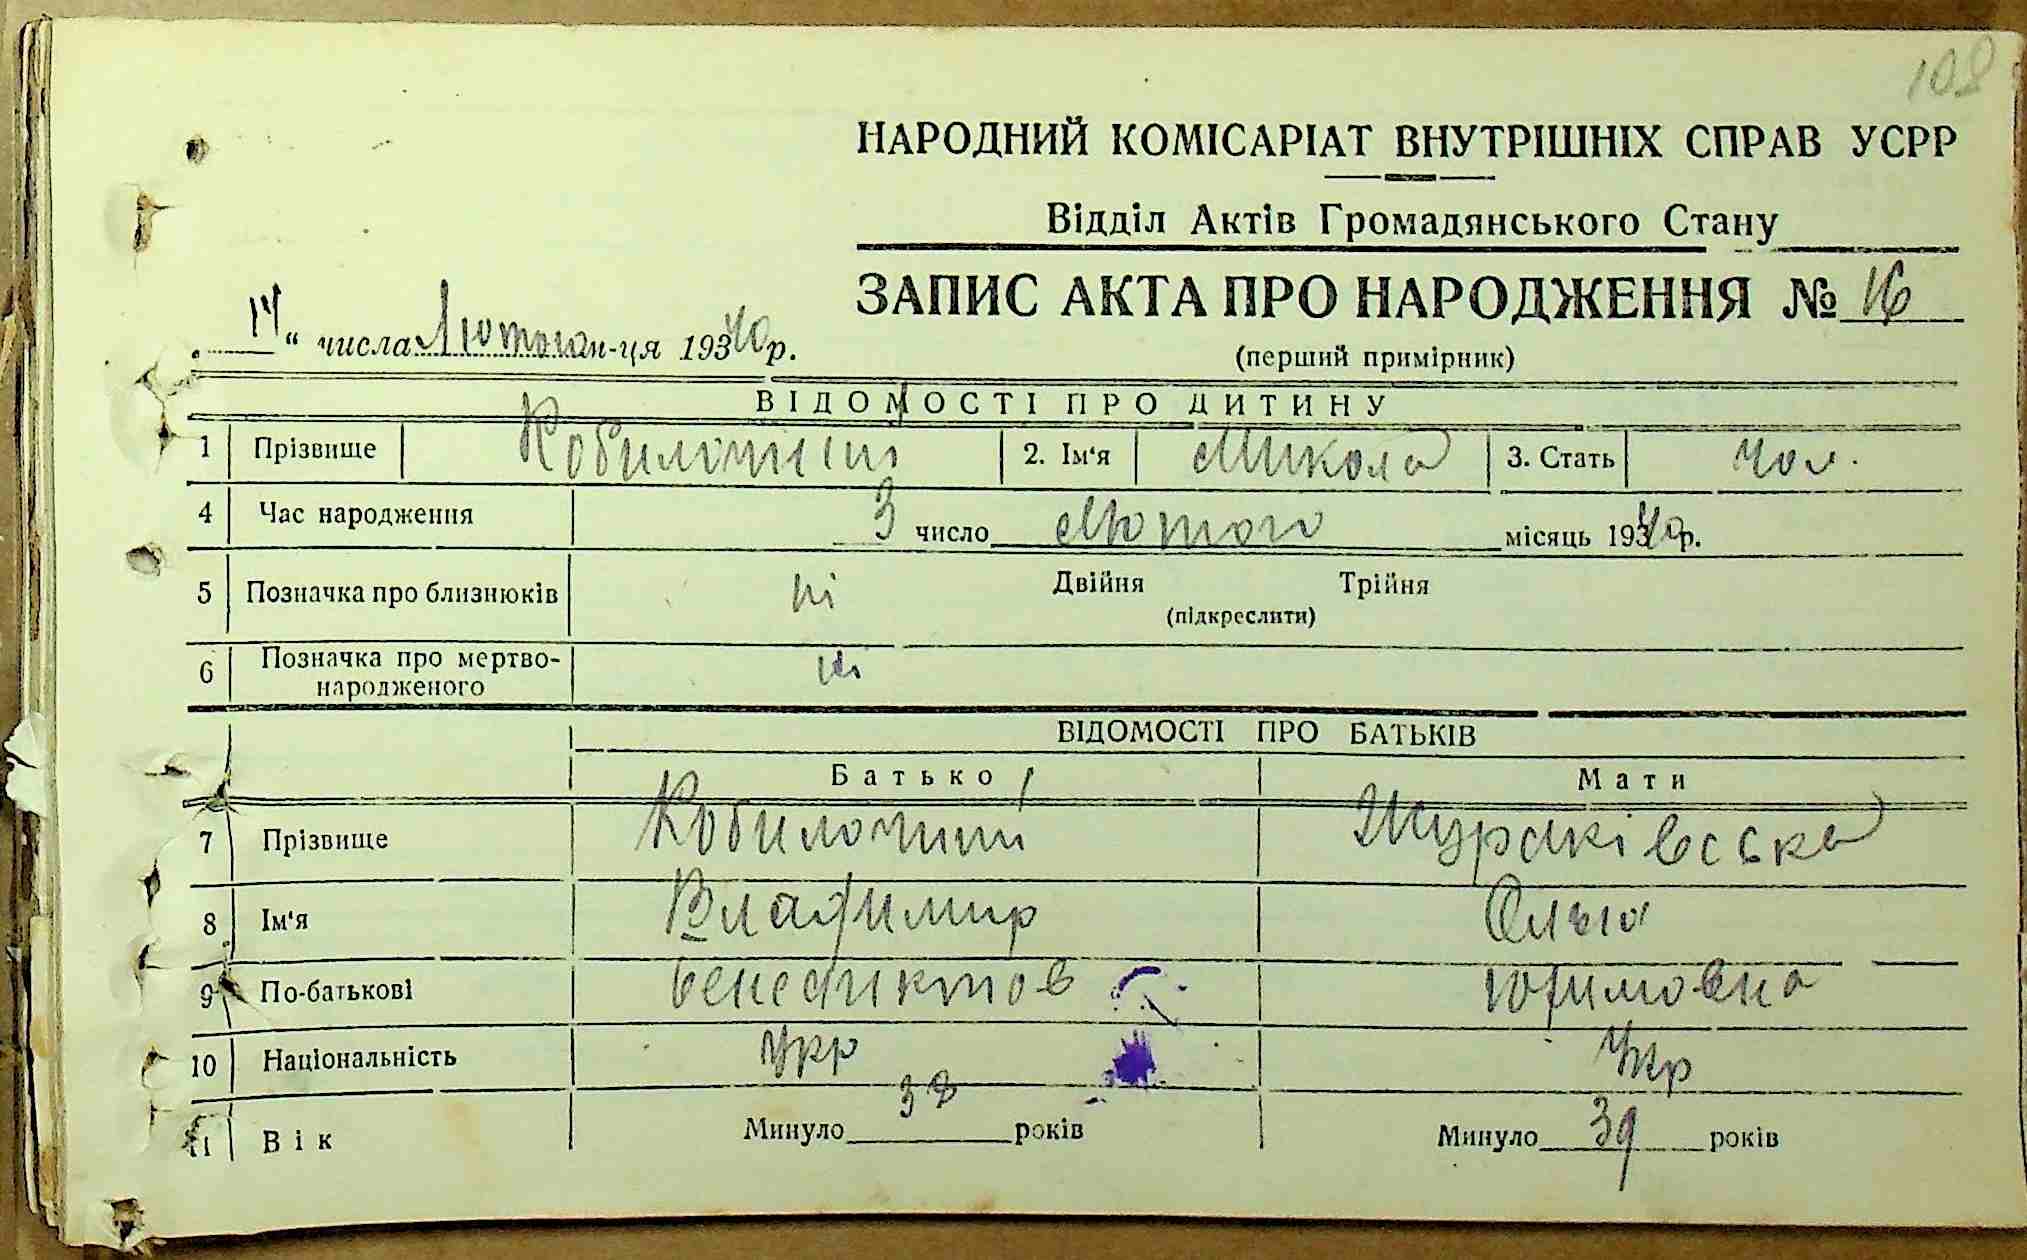 108
НАРОДНИЙ КОМІСАРІАТ ВНУТРІШНІХ СПРАВ УСРР
Відділ Актів Громадянського Стану
ЗАПИС АКТА ПРО НАРОДЖЕННЯ № 16
„14“ числа Лютого м-ця 1940 р.
(перший примірник)
ВІДОМОСТІ ПРО ДИТИНУ
1 Прізвище Кобилочний 2. Ім‘я Микола 3. Стать чол.
4 Час народження 3 число Лютого місяць 1940 р.
5 Позначка про близнюків ні Двійня Трійня
(підкреслити)
6 Позначка про мертво-
народженого ні
ВІДОМОСТІ ПРО БАТЬКІВ
Батько Мати
7 Прізвище Кобилочний Жураківська
8 Ім‘я Владимир Ольга
9 По-батькові Бенедиктов Юхимовна
10 Національність Укр Укр
11 Вік Минуло 38 років Минуло 39 років